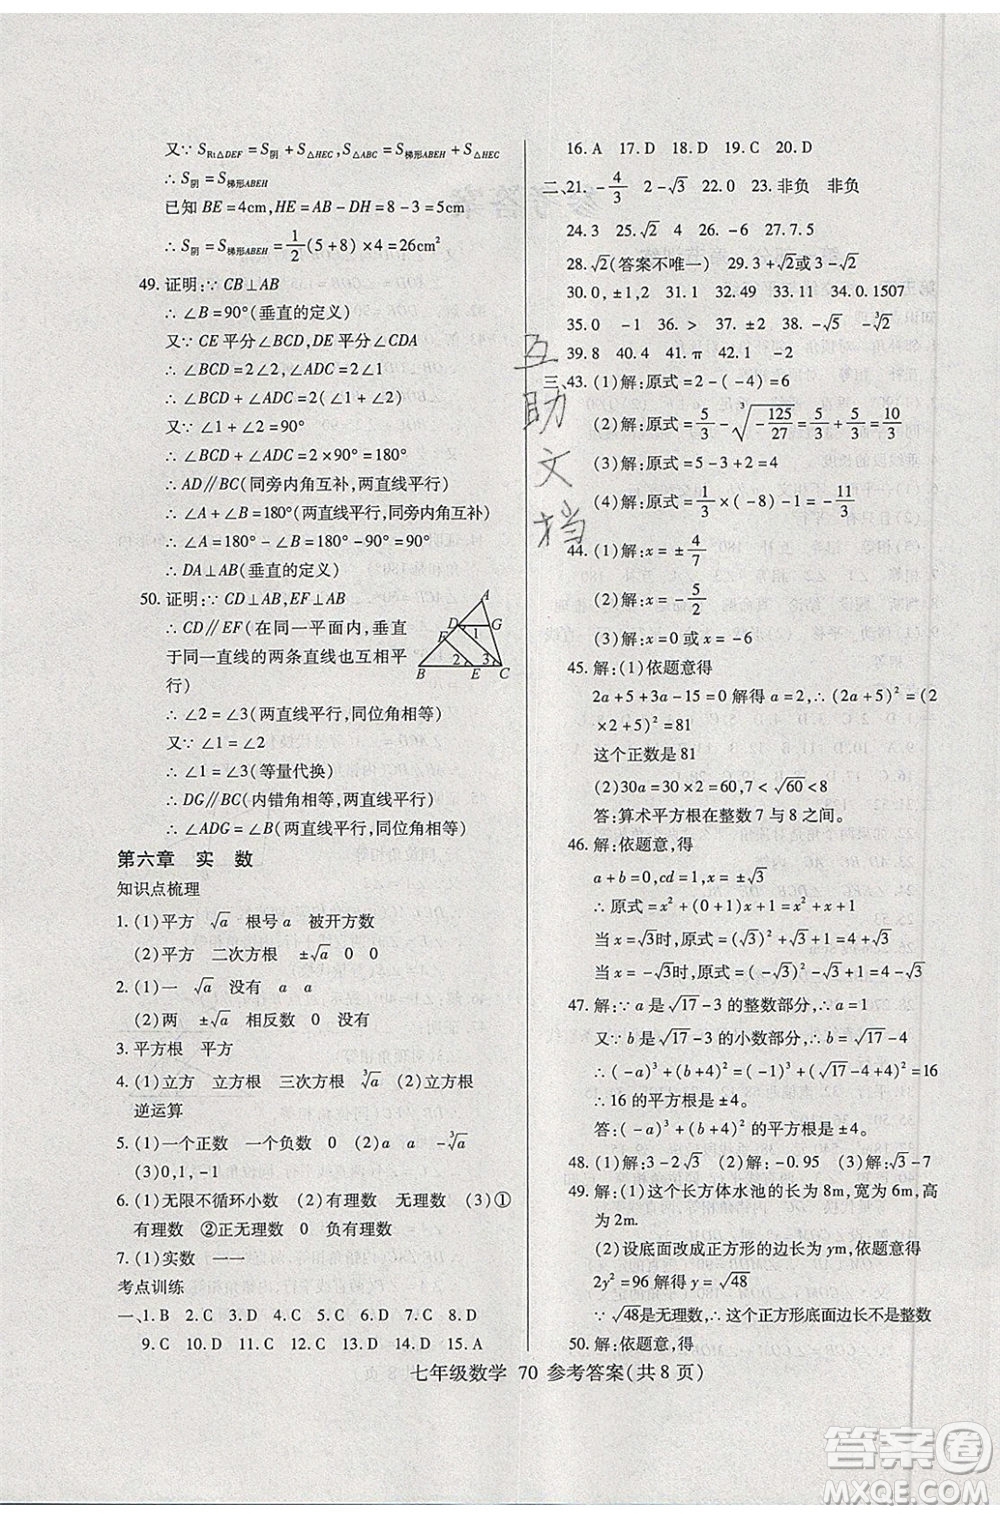 又∵ S_{Rt△DEF}=S_阴+S_{△HEC},S_{△ABC}=S_{梯形ABEH}+S_{△HEC}
∴ S_阴=S_{梯形ABEH}
已知 BE=4cm,HE=AB-DH=8-3=5cm
∴ S_阴=S_{梯形ABEH}=1/2(5+8)×4=26cm²
49. 证明:∵ CB⊥AB
∴ ∠B=90°(垂直的定义)
又∵ CE 平分∠BCD,DE 平分∠CDA
∴ ∠BCD=2∠2,∠ADC=2∠1
∴ ∠BCD+∠ADC=2(∠1+∠2)
又∵ ∠1+∠2=90°
∴ ∠BCD+∠ADC=2×90°=180°
∴ AD∥BC(同旁内角互补,两直线平行)
∴ ∠A+∠B=180°(两直线平行,同旁内角互补)
∴ ∠A=180°-∠B=180°-90°=90°
∴ DA⊥AB(垂直的定义)
50. 证明:∵ CD⊥AB,EF⊥AB
∴ CD∥EF(在同一平面内,垂直
于同一直线的两条直线也互相平
行)
∴ ∠2=∠3(两直线平行,同位角相等)
又∵ ∠1=∠2
∴ ∠1=∠3(等量代换)
∴ DG∥BC(内错角相等,两直线平行)
∴ ∠ADG=∠B(两直线平行,同位角相等)
A
D G
F 1
2 3
B E C
第六章 实 数
知识点梳理
1. (1)平方 √a 根号a 被开方数
(2)平方 二次方根 ±√a 0 0
2. (1)一 √a 没有 a a
(2)两 ±√a 相反数 0 没有
3. 平方根 平方
4. (1)立方 立方根 三次方根 ∛a (2)立方
逆运算
5. (1)一个正数 一个负数 0 (2)a a -∛a
(3)0,1,-1
6. (1)无限不循环小数 (2)有理数 无理数 (3)①
有理数 ②正无理数 0 负有理数
7. (1)实数 一一
考点训练
一、1. B 2. C 3. D 4. D 5. C 6. C 7. B 8. D
9. C 10. C 11. D 12. D 13. C 14. D 15. A
16. A 17. D 18. C 19. C 20. D
二、21. -4/3 2-√3 22. 0 23. 非负 非负
24. 3 25. √2 4 26. < < 27. 7.5
28. √2(答案不唯一) 29. 3+√2或3-√2
30. 0, ±1,2 31. 3 32. 49 33. -4 34. 0.1507
35. 0 -1 36. > 37. > 2 38. -√5 -∛2
39. 8 40. 4 41. π 42. 1 -2
三、43. (1)解:原式=2-(-4)=6
(2)解:原式=5/3-∛(-125/27)=5/3+5/3=10/3
(3)解:原式=5-3+2=4
(4)解:原式=1/3×(-8)-1=-11/3
44. (1)解:x=±4/7
(2)解:x=-5/2
(3)解:x=0 或 x=-6
45. 解:(1)依题意得
2a+5+3a-15=0 解得 a=2,∴ (2a+5)²=(2
×2+5)²=81
这个正数是 81
(2)30a=30×2=60,7<√60<8
答:算术平方根在整数 7 与 8 之间。
46. 解:依题意,得
a+b=0,cd=1,x=±√3
∴ 原式=x²+(0+1)x+1=x²+x+1
当x=√3时,原式=(√3)²+√3+1=4+√3
当x=-√3时,原式=(-√3)²-√3+1=4-√3
47. 解:∵ a 是√17-3 的整数部分,∴ a=1
又∵ b 是√17-3 的小数部分,∴ b=√17-4
∴ (-a)³+(b+4)²=(-1)³+(√17-4+4)²=16
∴ 16 的平方根是±4。
答:(-a)³+(b+4)² 的平方根是±4。
48. (1)解:3-2√3 (2)解:-0.95 (3)解:√3-7
49. 解:(1)这个长方体水池的长为 8m,宽为 6m,高
为 2m.
(2)设底面改成正方形的边长为 ym,依题意得
2y²=96 解得 y=√48
∵ √48是无理数,∴ 这个正方形底面边长不是整数
50. 解:依题意,得
七年级数学 70 参考答案(共 8 页)
互助文档
答案圈
MXQE.COM